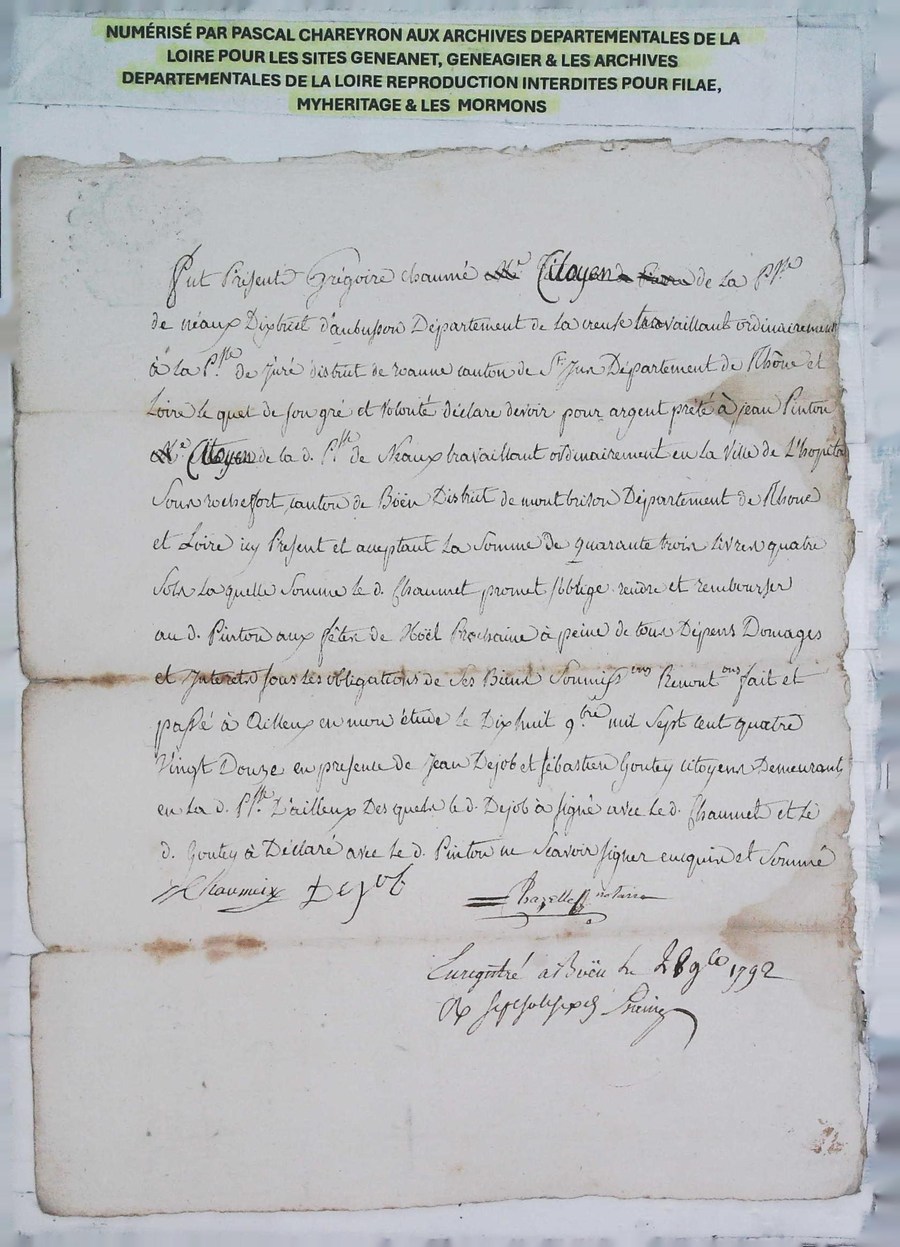 NUMÉRISÉ PAR PASCAL CHAREYRON AUX ARCHIVES DEPARTEMENTALES DE LA
LOIRE POUR LES SITES GENEANET, GENEAGIER & LES ARCHIVES
DEPARTEMENTALES DE LA LOIRE REPRODUCTION INTERDITES POUR FILAE,
MYHERITAGE & LES MORMONS
Fut Présent Grégoire Chaumé Citoyen de la Psse
de néaux District d'aubusson Département de la creuse travaillant ordinairement
à la Psse de Juré district de roanne canton de St Jus Département de Rhône et
Loire le quel de son gré et volonté déclare devoir pour argent prêté à jean Pinton
Citoyen de la d. Psse de Néaux travaillant ordinairement en la Ville de L'hopital
Sous rochefort canton de Boën District de montbrison Département de Rhone
et Loire icy Présent et acceptant La Somme de quarante trois livres quatre
Sols La quelle Somme le d. Chaumet promet s'oblige rendre et rembourser
au d. Pinton aux fêtes de Noël Prochaine à peine de tous Dépens Domages
et Interets sous les obligations de Ses Biens Soumissons Renontons fait et
passé à Ailleux en mon étude le Dix huit 9bre mil Sept cent quatre
Vingt Douze en presence de Jean Dejob et sébastien Goutey citoyens Demeurant
en La d. Psse D'ailleux Des quels le d. Dejob à signé avec Le d. Chaumet et Le
d. Goutey à Déclaré avec Le d. Pinton ne Scavoir signer enquis et Sommé
Chaumeix Dejob notaire
Enregistré à Boën le 28 9bre 1792
R sept sols six ds